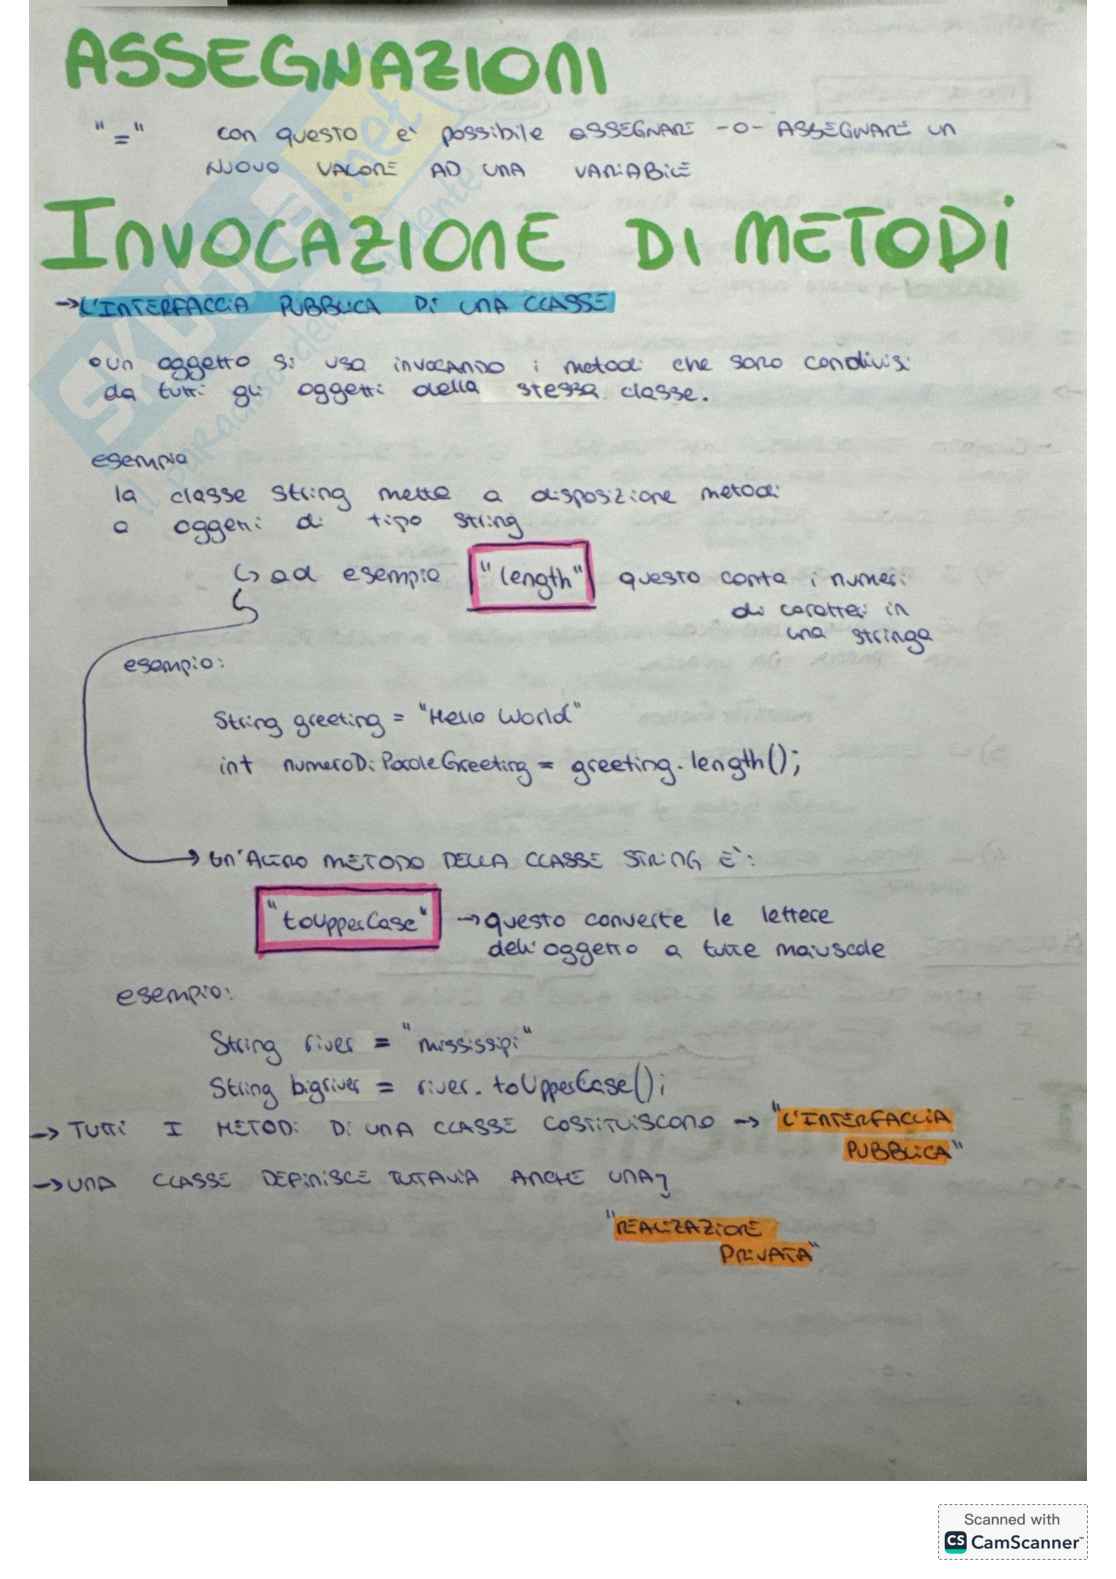 ASSEGNAZIONI
"=" con questo è possibile ASSEGNARE -O- ASSEGNARE UN
NUOVO VALORE AD UNA VARIABILE
INVOCAZIONE DI METODI
→L'INTERFACCIA PUBBLICA DI UNA CLASSE
• Un oggetto si usa INVOCANDO i metodi che sono condivisi
da tutti gli oggetti della stessa classe.
esempio
la classe String mette a disposizione metodi
a oggetti di tipo String
↳ ad esempio "length" questo conta i numeri
di caratteri in
una stringa
esempio:
String greeting = "Hello World"
int numeroDiParoleGreeting = greeting.length();
→ UN'ALTRO METODO DELLA CLASSE STRING È:
"toUpperCase" → questo converte le lettere
dell'oggetto a tutte maiuscole
esempio:
String river = "mississipi"
String bigriver = river.toUpperCase();
→ TUTTI I METODI DI UNA CLASSE COSTITUISCONO → "L'INTERFACCIA
PUBBLICA"
→ UNA CLASSE DEFINISCE TUTTAVIA ANCHE UNA
"REALIZAZIONE
PRIVATA"
SKUOLA.net
il paradiso dello studente
Scanned with
CS CamScanner